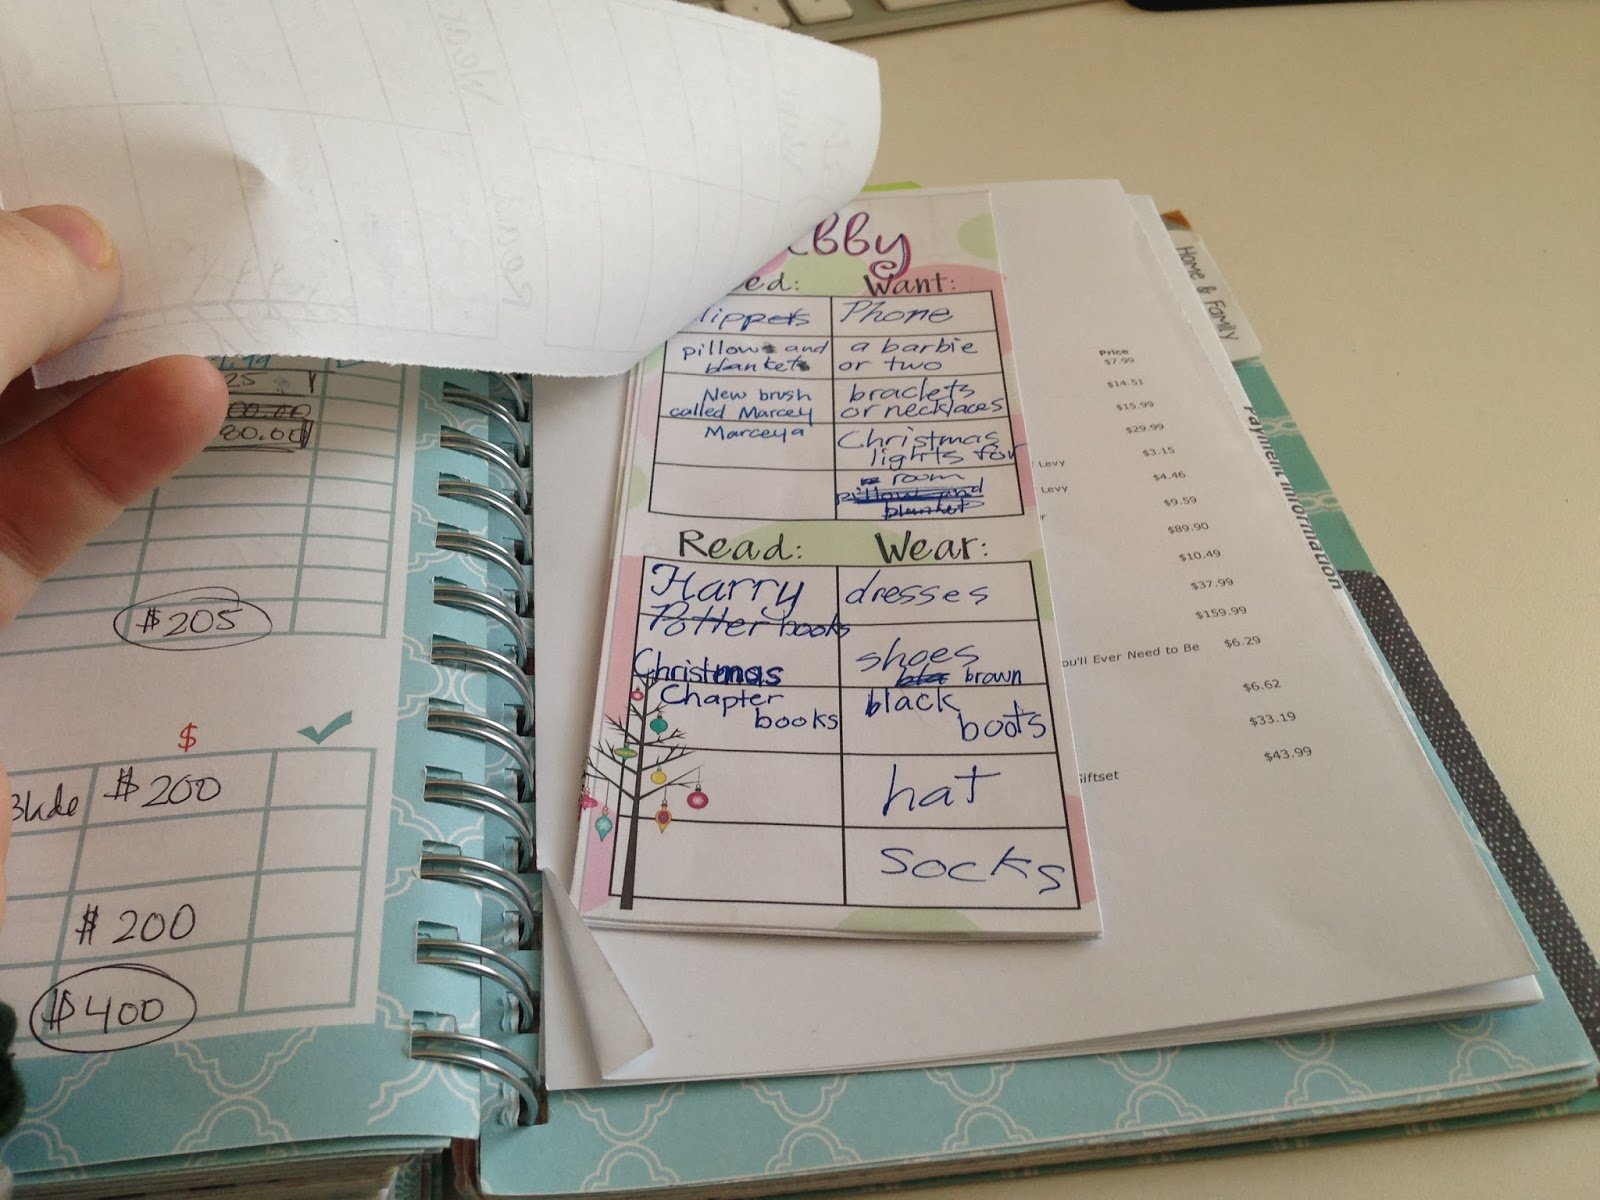 $205
$
Blade $200
$200
$400
Want:
Phone
pillows and
blankets
a barbie
or two
New brush
called Marcey
Marceya
braclets
or necklaces
Christmas
lights for
room
pillow and
blanket
Read: Wear:
Harry
Potter books
dresses
Christmas
Chapter
books
shoes
brown
black
boots
hat
socks
Price
$7.99
$14.51
$15.99
$29.99
Levy $3.15
Levy $4.46
$9.59
$89.90
$10.49
$37.99
$159.99
ou'll Ever Need to Be $6.29
$6.62
$33.19
Giftset $43.99
Home & Family
Payment Information